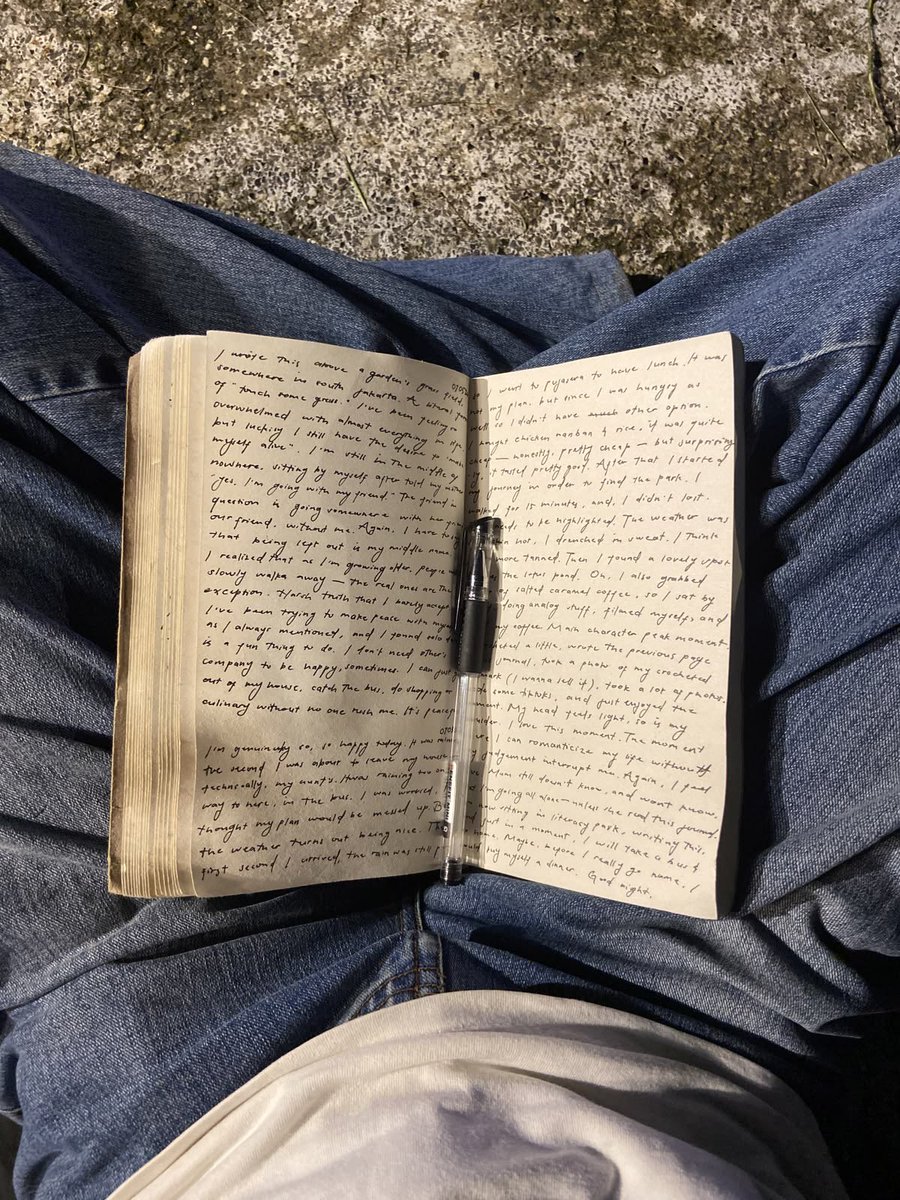 I wrote this above a garden's grass field,
somewhere in south Jakarta. A literal form
of "touch some grass". I've been feeling so
overwhelmed with almost everything in life
but luckily I still have the desire to make
myself alive". I'm still in the middle of
nowhere, sitting by myself after told my mother
"yes, I'm going with my friend." The friend in
question is going somewhere with her
our friend, without me. Again, I have to
that being left out is my middle name
I realized that as I'm growing older, people
slowly walks away — the real ones are the
exception. Harsh truth that I barely accept
I've been trying to make peace with
as I always mentioned, and I found solo
is a fun thing to do. I don't need other's
company to be happy, sometimes. I can just
out of my house, catch the bus, do shopping or
culinary without no one rush me. It's
I'm genuinely so, so happy today. It was
the second I was about to leave my
technically, my aunt's. It was raining too on
way to here, in the bus. I was worried,
thought my plan would be messed up. B
the weather turns out being nice. Th
first second I arrived, the rain was still
I went to pujasera to have lunch. It was
not my plan, but since I was hungry as
well so I didn't have much other option.
chicken nanban & rice, it was quite
cheap — honestly, pretty cheap — but surprising
it tasted pretty good. After that I started
my journey in order to find the park. I
for 15 minuty, and, I didn't lost.
to be highlighted. The weather was
hot, I drenched in sweat. I think
more tanned. Then I found a lovely spot
the lotus pond. Oh, I also grabbed
salted caramel coffee, so I sat by
doing analog stuff, filmed myself, and
my coffee. Main character peak moment.
a little, wrote the previous page
journal, took a photo of my crocheted
(I wanna sell it), took a lot of photos.
some tiktoks, and just enjoyed the
My head feels light, so is my
I love this moment. The moment
I can romanticize my life without
judgement interrupt me. Again, I
Mum still doesn't know, and won't know,
I'm going all alone — unless she read this journal.
sitting in literacy park, writing this,
in a moment, I will take a bus
home. Maybe, before I really go home, I
buy myself a dinner. Good night.